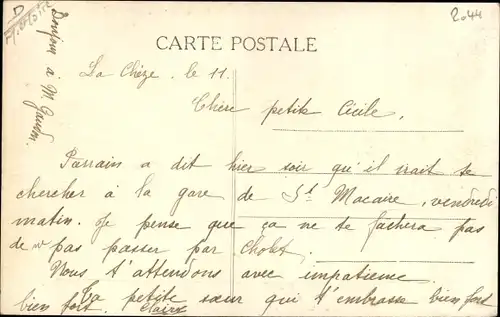 2.044
CARTE POSTALE
La Chèze. le 11.
Chère petite Cécile,
Parrain a dit hier soir qu'il irait se
chercher à la gare de St Macaire, vendredi
matin. Je pense que ça ne te fachera pas
de ne pas passer par Cholet.
Nous t'attendons avec impatience.
Ta petite sœur qui t'embrasse bien fort
bien fort. Claire
Bonjour à M. Gaudin.